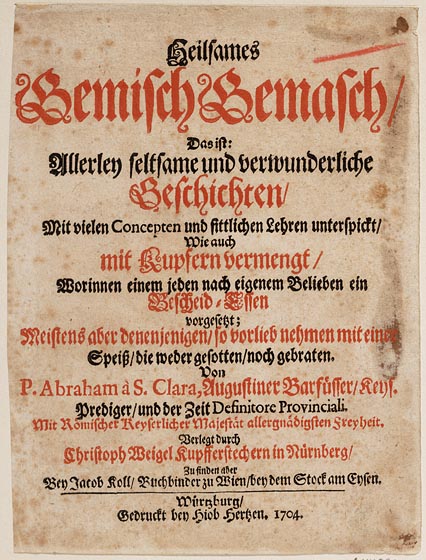 Heilsames
Gemisch Gemasch/
Das ist:
Allerley seltsame und verwunderliche
Geschichten/
Mit vielen Concepten und sittlichen Lehren unterspickt/
Wie auch
mit Kupfern vermengt/
Worinnen einem jeden nach eigenem Belieben ein
Bescheid-Essen
vorgesetzt;
Meistens aber denenjenigen/ so vorlieb nehmen mit einer
Speiß/ die weder gesotten/ noch gebraten.
Von
P. Abraham à S. Clara, Augustiner Barfüsser/ Keys.
Prediger/ und der Zeit Definitore Provinciali.
Mit Römischer Keyserlicher Majestät allergnädigsten Freyheit.
Verlegt durch
Christoph Weigel Kupfferstechern in Nürnberg/
Zu finden aber
Bey Jacob Koll/ Buchbinder zu Wien/ bey dem Stock am Eysen.
Würtzburg/
Gedruckt bey Hiob Hertzen. 1704.